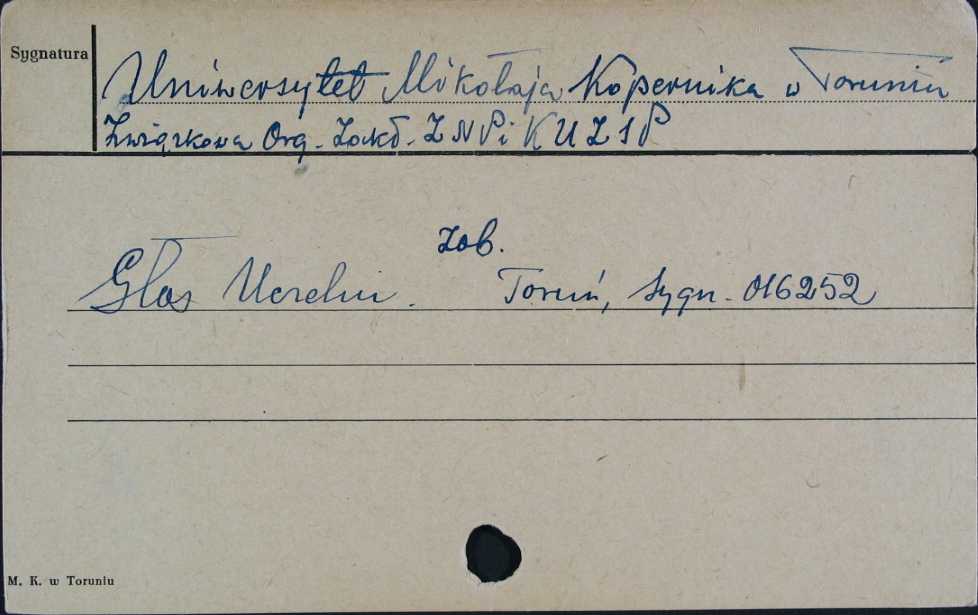 Sygnatura
Uniwersytet Mikołaja Kopernika w Toruniu
Związkowa Org. Zakł. Z N P i K U Z S P
zob.
Głos Uczelni. Toruń, sygn. 016252
M. K. w Toruniu